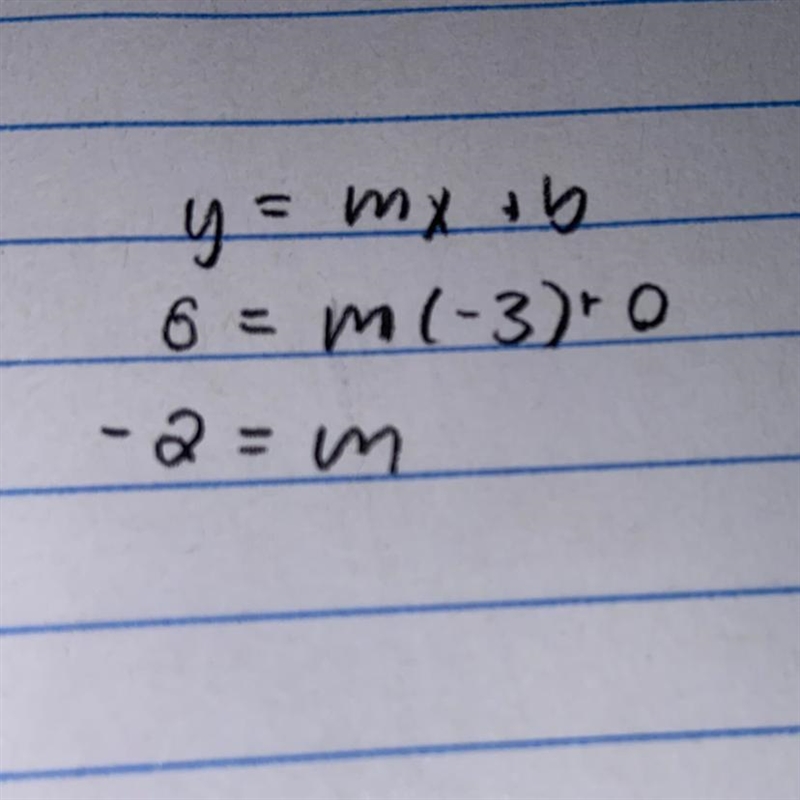 y = mx + b
6 = m(-3) + 0
-2 = m